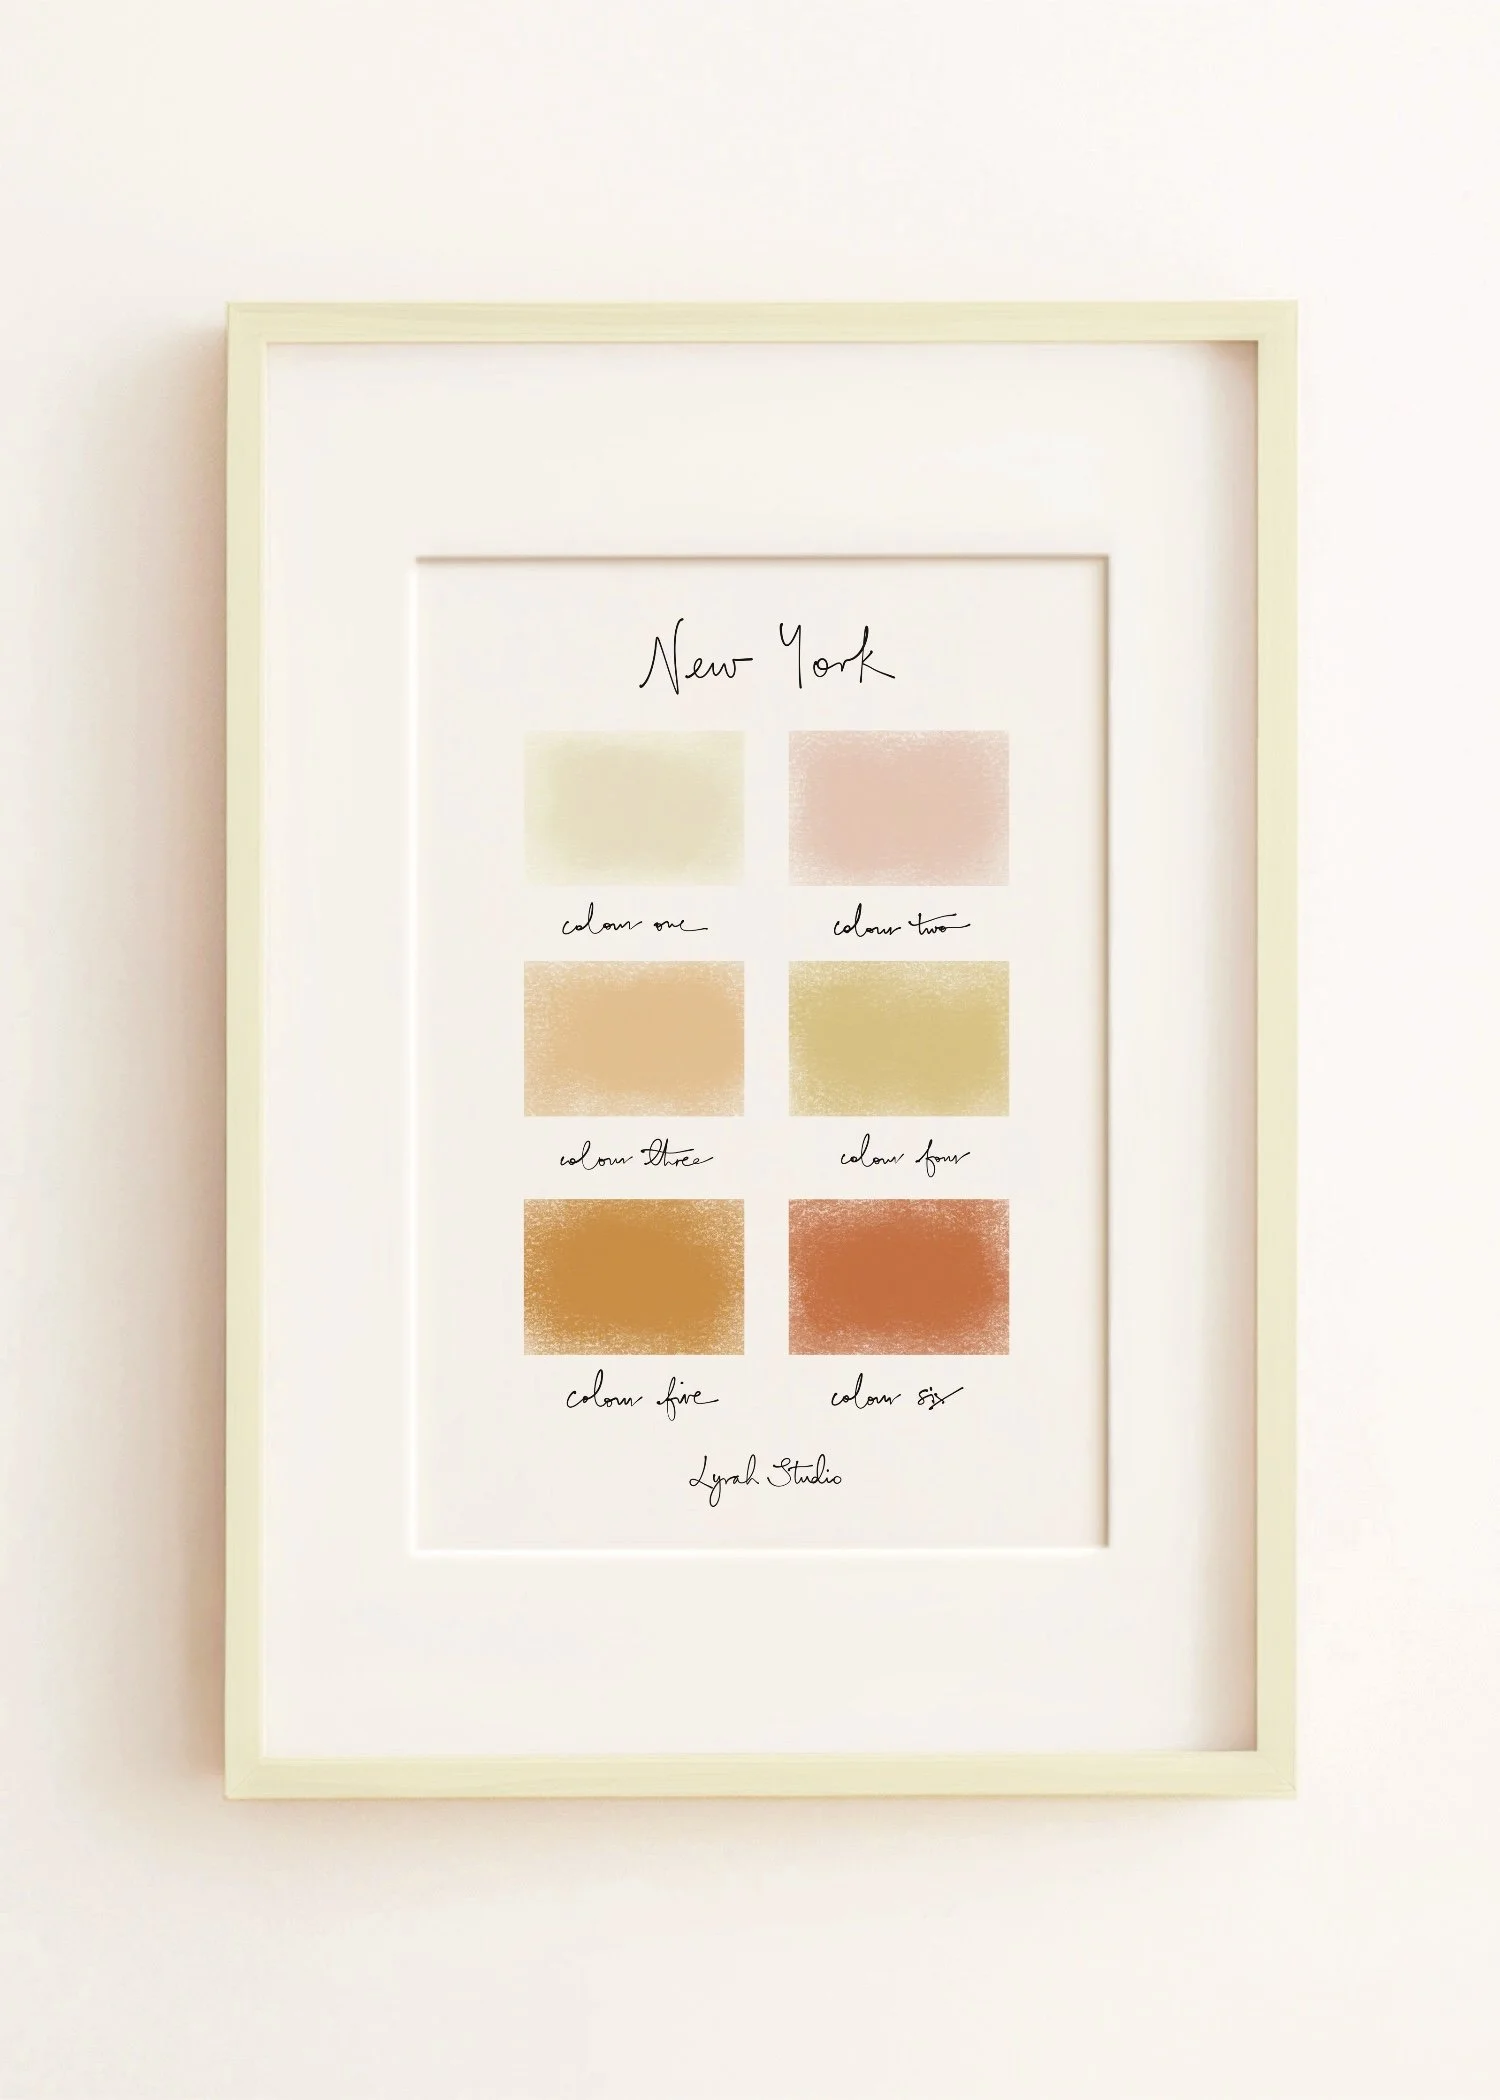 New York
colour one
colour two
colour three
colour four
colour five
colour six
Lyrah Studio